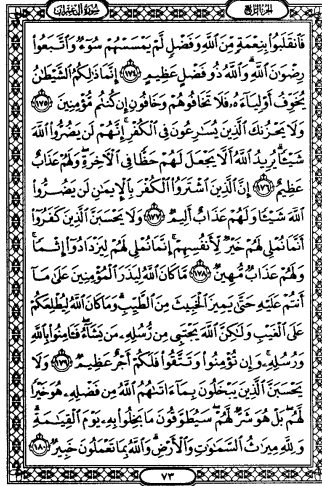 سُورَةُ آلِ عِمْرَان
الجُزْءُ الرَّابِعُ
فَٱنقَلَبُوا۟ بِنِعْمَةٍ مِّنَ ٱللَّهِ وَفَضْلٍ لَّمْ يَمْسَسْهُمْ سُوٓءٌ وَٱتَّبَعُوا۟
رِضْوَٰنَ ٱللَّهِ وَٱللَّهُ ذُو فَضْلٍ عَظِيمٍ ١٧٤ إِنَّمَا ذَٰلِكُمُ ٱلشَّيْطَٰنُ
يُخَوِّفُ أَوْلِيَآءَهُۥ فَلَا تَخَافُوهُمْ وَخَافُونِ إِن كُنتُم مُّؤْمِنِينَ ١٧٥
وَلَا يَحْزُنكَ ٱلَّذِينَ يُسَٰرِعُونَ فِى ٱلْكُفْرِ إِنَّهُمْ لَن يَضُرُّوا۟ ٱللَّهَ
شَيْـًٔا يُرِيدُ ٱللَّهُ أَلَّا يَجْعَلَ لَهُمْ حَظًّا فِى ٱلْـَٔاخِرَةِ وَلَهُمْ عَذَابٌ
عَظِيمٌ ١٧٦ إِنَّ ٱلَّذِينَ ٱشْتَرَوُا۟ ٱلْكُفْرَ بِٱلْإِيمَٰنِ لَن يَضُرُّوا۟
ٱللَّهَ شَيْـًٔا وَلَهُمْ عَذَابٌ أَلِيمٌ ١٧٧ وَلَا يَحْسَبَنَّ ٱلَّذِينَ كَفَرُوٓا۟
أَنَّمَا نُمْلِى لَهُمْ خَيْرٌ لِّأَنفُسِهِمْ إِنَّمَا نُمْلِى لَهُمْ لِيَزْدَادُوٓا۟ إِثْمًا
وَلَهُمْ عَذَابٌ مُّهِينٌ ١٧٨ مَّا كَانَ ٱللَّهُ لِيَذَرَ ٱلْمُؤْمِنِينَ عَلَىٰ مَآ
أَنتُمْ عَلَيْهِ حَتَّىٰ يَمِيزَ ٱلْخَبِيثَ مِنَ ٱلطَّيِّبِ وَمَا كَانَ ٱللَّهُ لِيُطْلِعَكُمْ
عَلَى ٱلْغَيْبِ وَلَٰكِنَّ ٱللَّهَ يَجْتَبِى مِن رُّسُلِهِۦ مَن يَشَآءُ فَـَٔامِنُوا۟ بِٱللَّهِ
وَرُسُلِهِۦ وَإِن تُؤْمِنُوا۟ وَتَتَّقُوا۟ فَلَكُمْ أَجْرٌ عَظِيمٌ ١٧٩ وَلَا
يَحْسَبَنَّ ٱلَّذِينَ يَبْخَلُونَ بِمَآ ءَاتَىٰهُمُ ٱللَّهُ مِن فَضْلِهِۦ هُوَ خَيْرًا
لَّهُم بَلْ هُوَ شَرٌّ لَّهُمْ سَيُطَوَّقُونَ مَا بَخِلُوا۟ بِهِۦ يَوْمَ ٱلْقِيَٰمَةِ
وَلِلَّهِ مِيرَٰثُ ٱلسَّمَٰوَٰتِ وَٱلْأَرْضِ وَٱللَّهُ بِمَا تَعْمَلُونَ خَبِيرٌ ١٨٠
٧٣